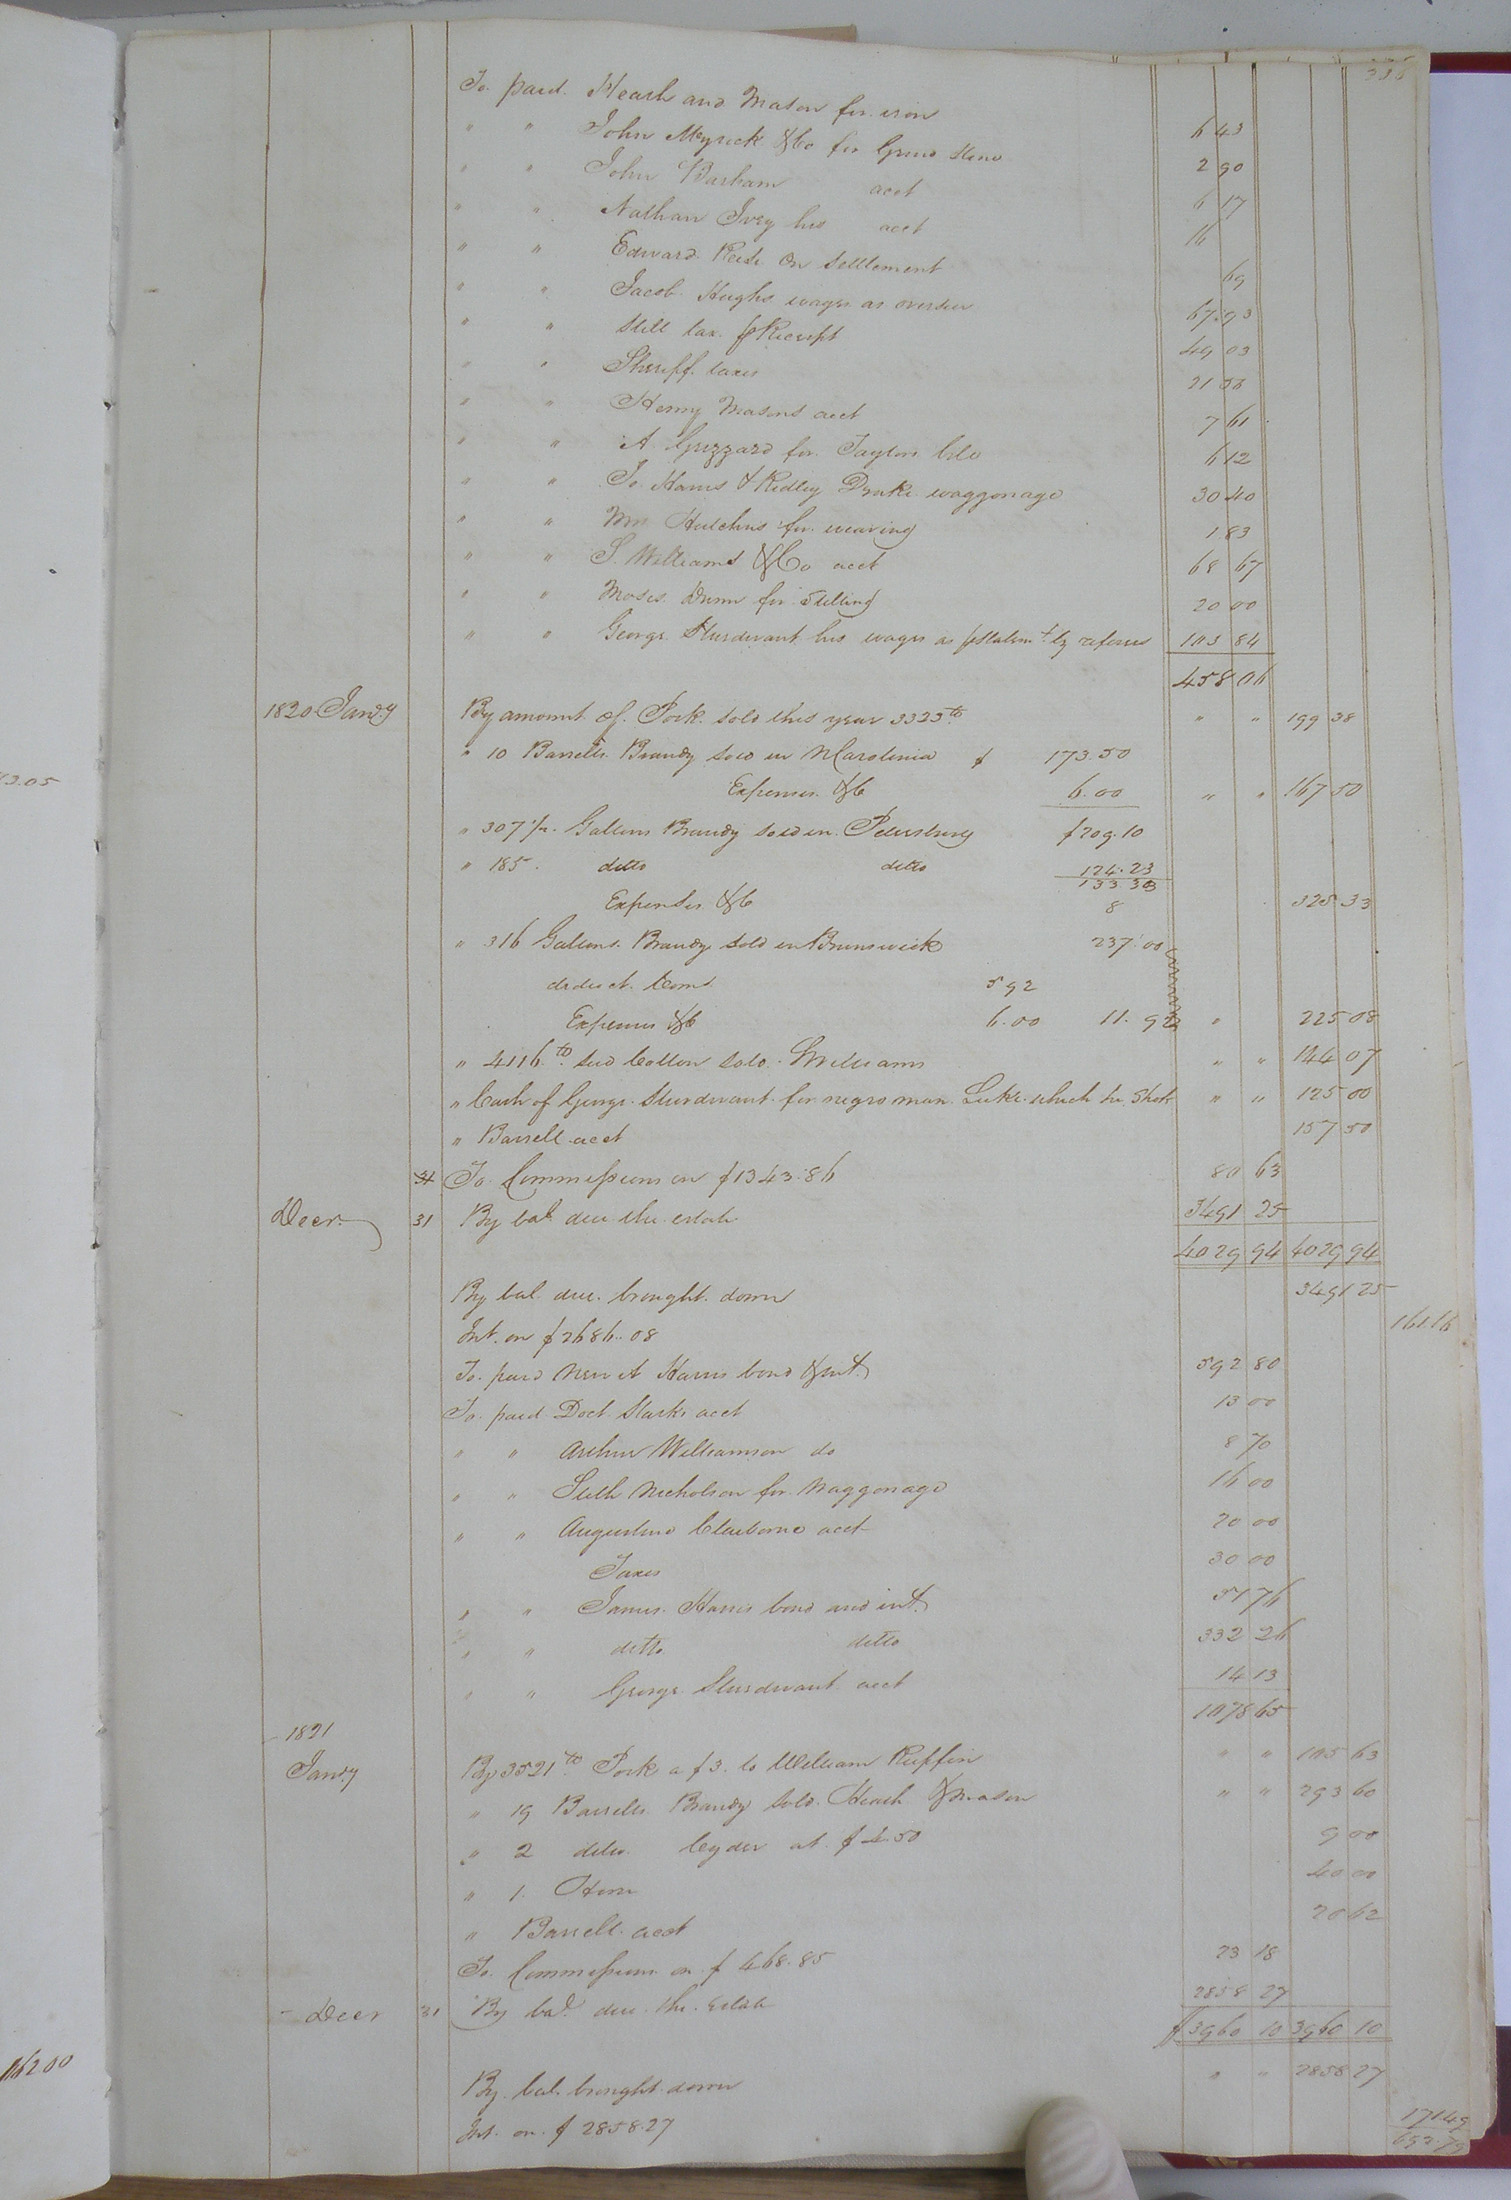 336
To paid Heath and Mason for iron 6 43
" " John Myrick &Co for Grind stone 2 90
" " John Barham acct 6 17
" " Nathan Ivey his acct 16
" " Edward Reese On Settlement 69
" " Jacob Heighs wages as overseer 67.93
" " Still tax pReceipt 49 03
" " Sheriff taxes 21 56
" " Henry Masons acct 7 61
" " A Grizzard for Taylor 6 12
" " To Harris & Ridley Drake waggonage 30 40
" " Mrs Hutchins for weaving 1.83
" " S. Williams &Co acct 68 67
" " Moses Dunn for Stilling 20 00
" " George Sturdivant his wages as pstatemt by referees 103 84
458 06
1820 Jany By amount of Pork sold this year 3323lb " " 199 38
" 10 Barrells Brandy sold in NCarolinia $ 173.50
Expenses &C 6.00 " " 167 50
" 307½ Gallons Brandy sold in Petersburg $209.10
" 185 ditto ditto 124.23
133 33
Expenses &C 8 325 33
" 316 Gallons Brandy sold in Brunswick 237.00
deduct Coms 5 92
Expenses &C 6.00 11.92 " 225 08
" 4116lb seed Cotton sold SWilliams " " 144 07
" Cash of George Sturdivant for negro man Luke which he Shot " " 125 00
" Barrell acct 157 50
31 To Commissions on $1343.86 80 63
Decr 31 By bal due the estate 3491 25
4029 94 4029 94
By bal due brought down 3491 25
Int. on $2686.08 161.16
To paid New A Harris bond &int. 592 80
To paid Doct Starke acct 13 00
" " Arthur Williamson do 8 70
" " Seth Nicholson for Waggonage 16 00
" " Augustine Claiborne acct 20 00
Taxes 30 00
" " James Harris bond and int. 51 76
" " ditto ditto 332 26
" " George Sturdivant acct 14 13
1078 65
1821
Jany By 3521lb Pork a $3. to William Ruffin " " 105 63
" 19 Barrells Brandy sold Heath &Mason " " 293 60
" 2 ditto Cyder at $4.50 9 00
" 1 Horse 40 00
" Barrell acct 20 62
To Commissions on $468.85 23 18
Decr 31 By bal due the Estate 2858 27
$3960 10 3960 10
By bal. brought down " " 2858 27
Int. on $2858.27 171.49
652.79
13.05
16200